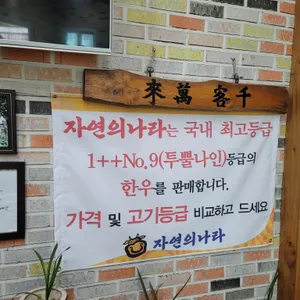 來萬客千
자연의나라는 국내 최고등급
1++No.9(투뿔나인)등급의
한우를 판매합니다.
가격 및 고기등급 비교하고 드세요
자연의나라